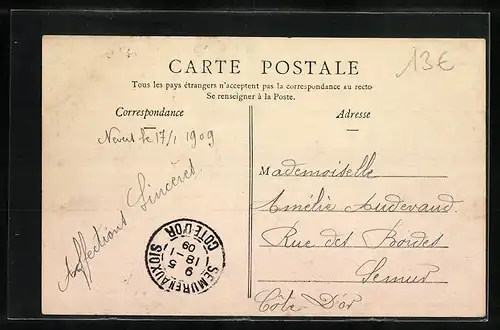 13€
CARTE POSTALE
Tous les pays étrangers n'acceptent pas la correspondance au recto
Se renseigner à la Poste.
Correspondance
Adresse
le 17/1 1909
Affections Sincères.
Mademoiselle
Amélie Audevaud
Rue des Bordes
Semur
Côte d'Or
SEMUR EN AUXOIS
CÔTE D'OR
9
18 - 1
09